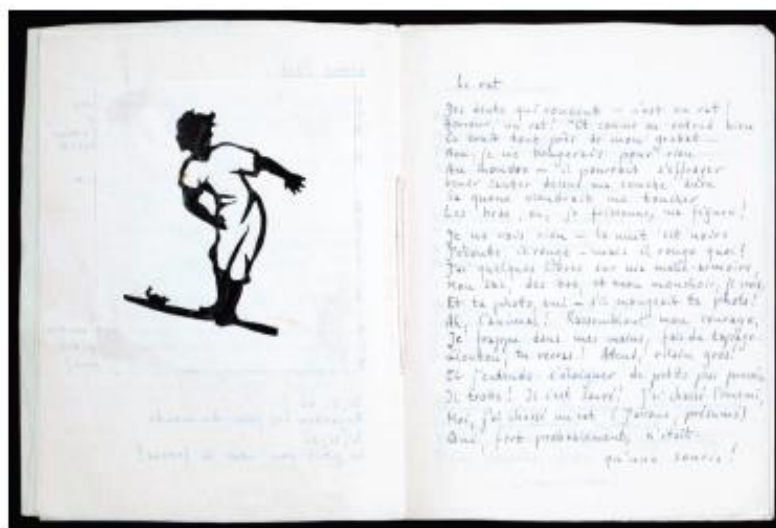 Le rat
Des dents qui rongent – c'est un rat!
Horreur, un rat! Et comme on entend bien
Ce bruit tout près de mon grabat –
Non, je ne bougerais pour rien
Au monde – il pourrait s'effrayer
sauter dessus ma couche
Sa queue viendrait me toucher
Les bras, ou, je frissonne, ma figure!
Je ne vois rien – la nuit est noire
J'écoute, il ronge – mais il ronge quoi?
J'ai quelques livres sur ma malle-armoire,
Mon sac, des bas, et mon mouchoir, je crois,
Et ta photo, oui – s'il mangeait ta photo!
Ah, l'animal! Rassemblant mon courage,
Je frappe dans mes mains, fais du tapage
tu verras! Attend, vilain gros!
Et j'entends s'éloigner de petits pas
Il trotte! Il s'est sauvé! J'ai chassé l'ennemi,
Moi, j'ai chassé un rat (J'avoue, présumé)
Qui, fort probablement, n'était
qu'une souris!